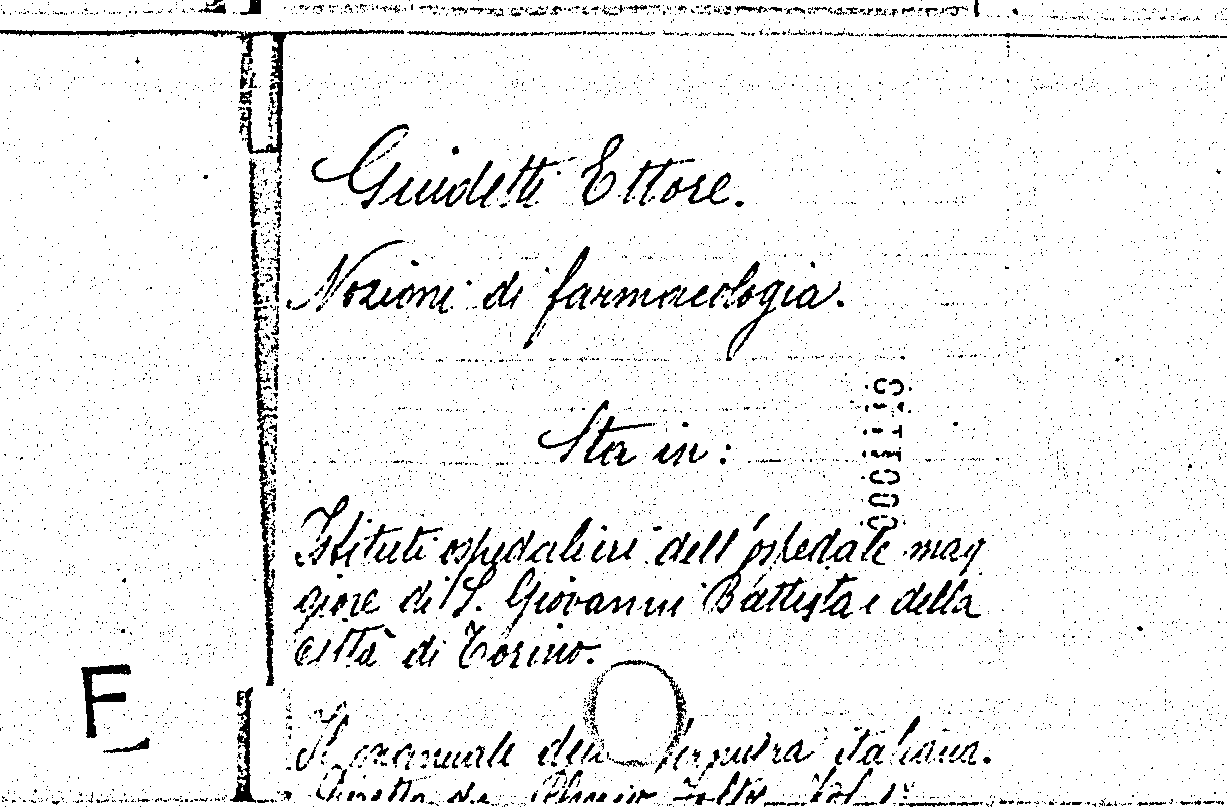 Guidetti Ettore.
Nozioni di farmacologia.
Sta in:
Istituti ospedalieri dell'ospedale mag
giore di S. Giovanni Battista e della
città di Torino.
Il manuale dell' italiana.